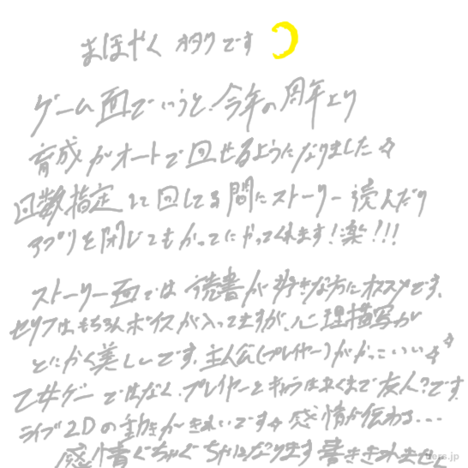 まほやく オタクです
ゲーム面でいうと、今年の周年より
育成がオートで回せるようになりました✧
回数指定して回してる間にストーリー読んだり
アプリを閉じてもかってにやってくれます!楽!!!
ストーリー面では 読書が好きな方にオススメです。
セリフはもちろんボイスが入ってますが、心理描写が
とにかく美しいです。主人公(プレイヤー)がかっこいい✧✧
乙女ゲーではなく、プレイヤーとキャラはあくまで友人?です
ライブ2Dの動きがきれいです✧ 感情が伝わる...
感情ぐちゃぐちゃになります 書ききれません